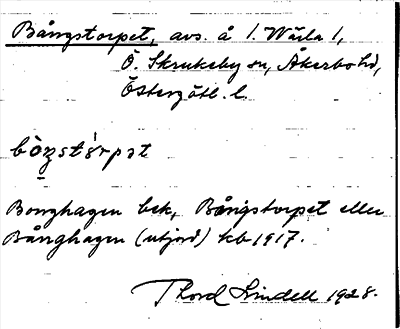 Bångstorpet, avs. å 1. Wärla 1,
Ö. Skrukeby sn, Åkerbo hd,
Östergötl. l.
bòŋstòrpət
Bonghagen bek, Bångstorpet eller
Bånghagen (utjord) kb 1917.
Thord Lindell 1928.